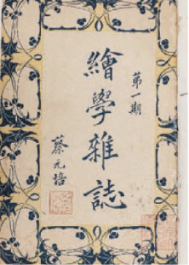 繪學雜誌
第一期
蔡元培